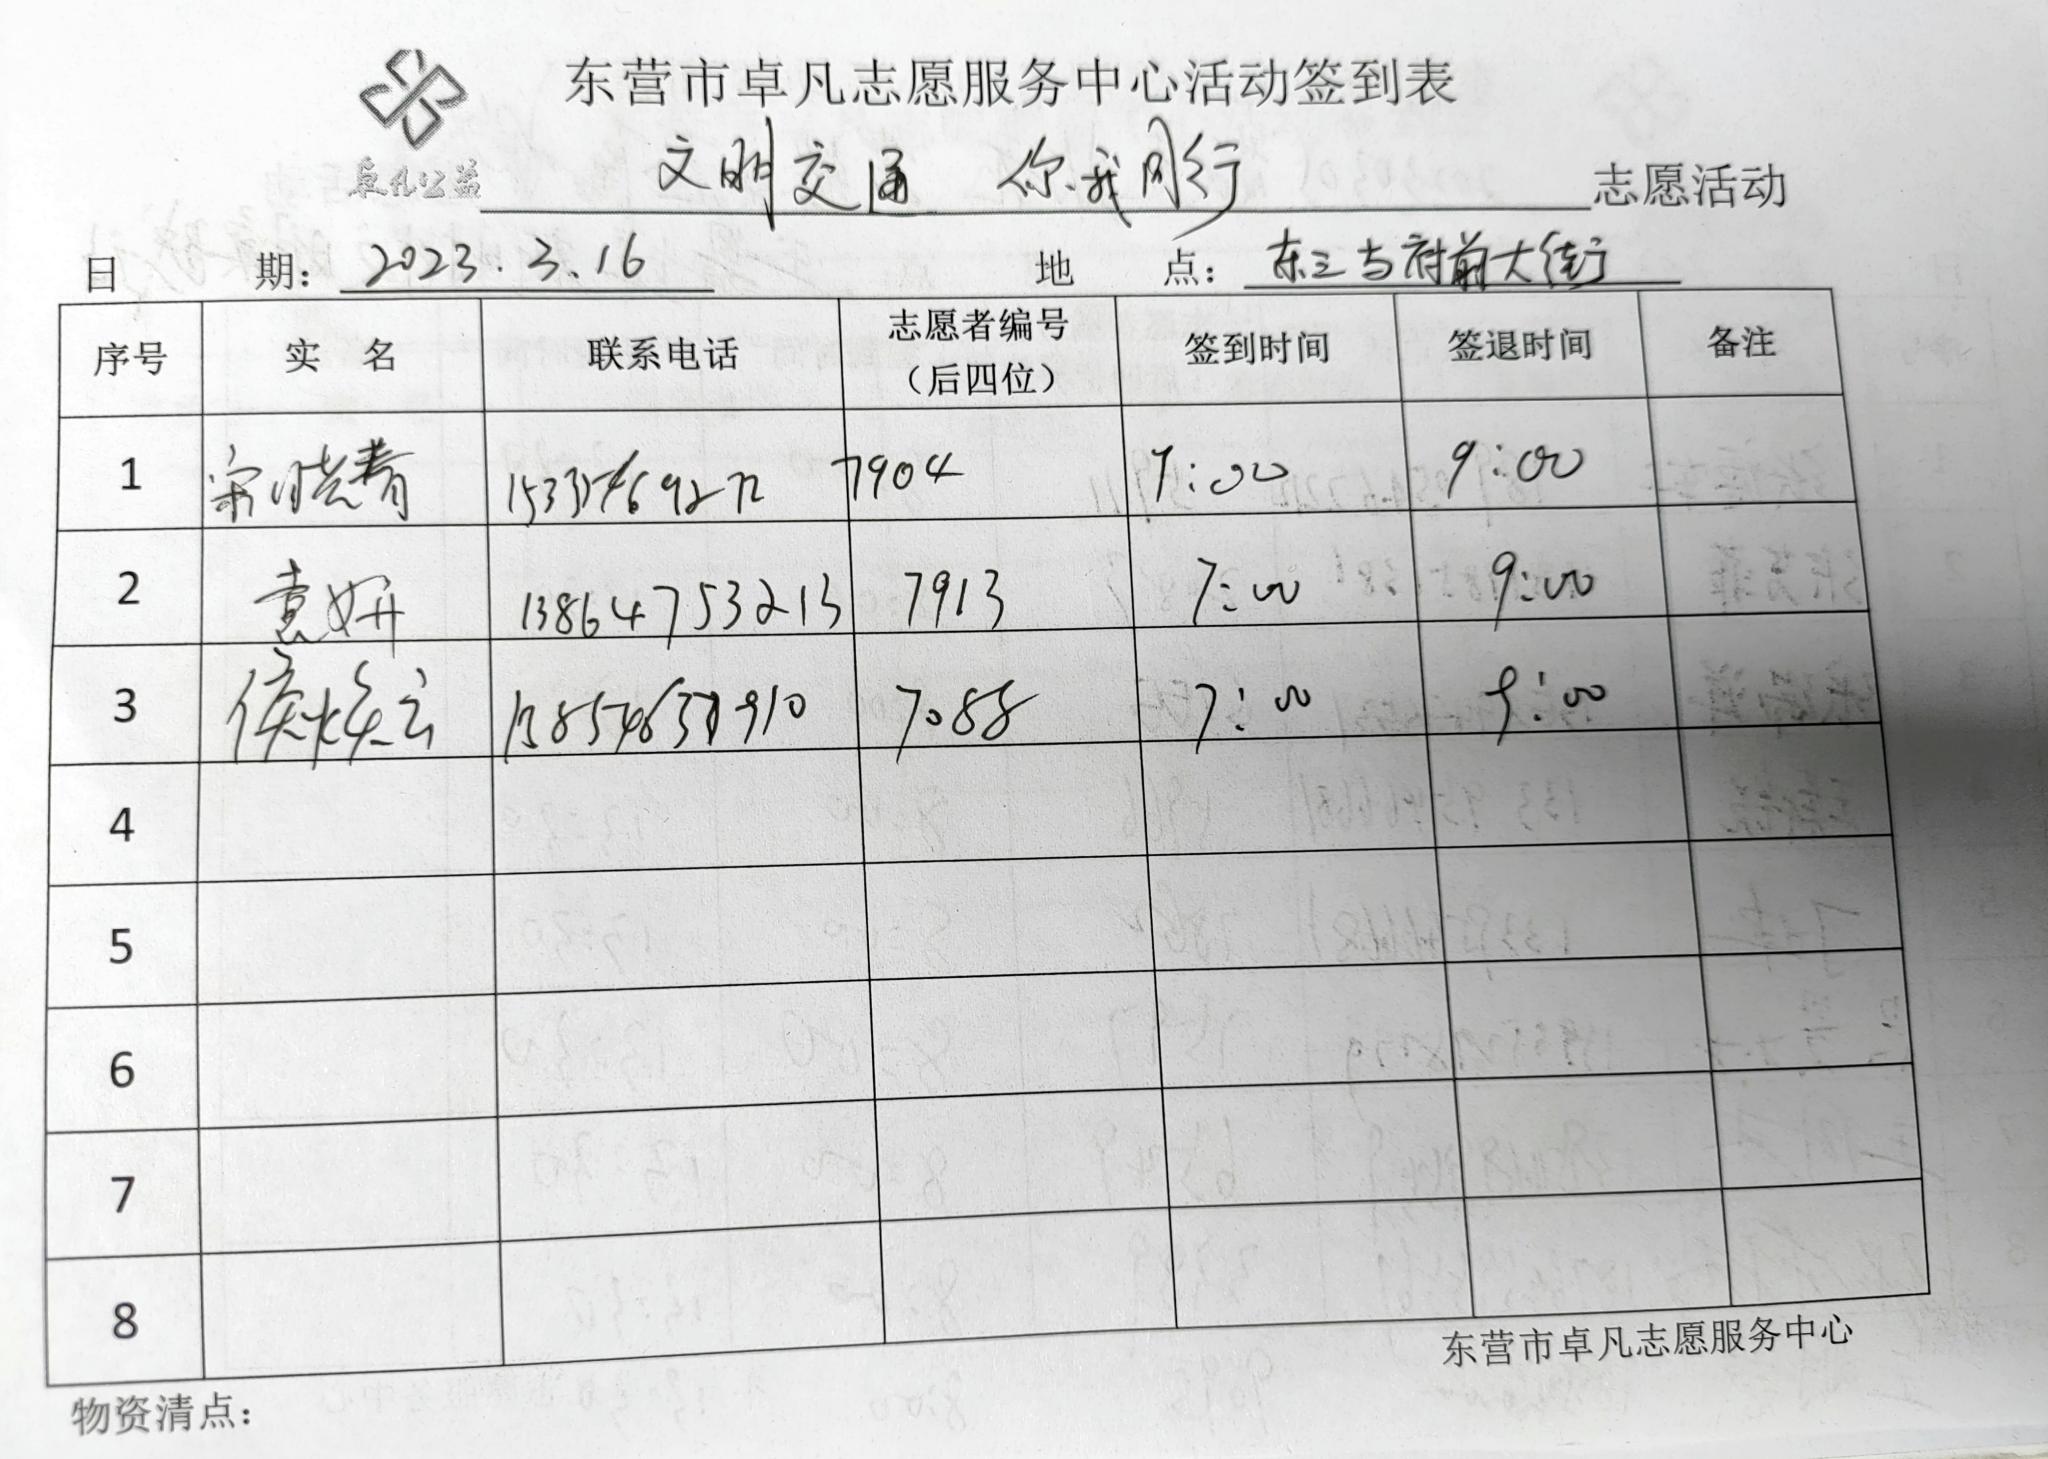 东营市卓凡志愿服务中心活动签到表
卓凡公益
文明交通 你我同行 志愿活动
日 期: 2023.3.16 地 点: 东三与府前大街
序号 实 名 联系电话 志愿者编号（后四位） 签到时间 签退时间 备注
1 宋晓青 7904 7:00 9:00
2 袁妍 13864753213 7913 7:00 9:00
3 侯焕云 7088 7:00 9:00
4
5
6
7
8
东营市卓凡志愿服务中心
物资清点: